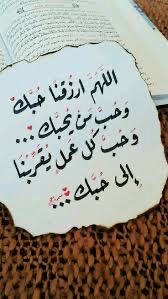 اللهَمَّ ارزُقنَا حُبَّكَ
وَحُبَّ مَنْ يُحبُّكَ...
وَحُبَّ كلَّ عَمَلٍ يُقَرّبُنَا
إلى حُبّكَ...